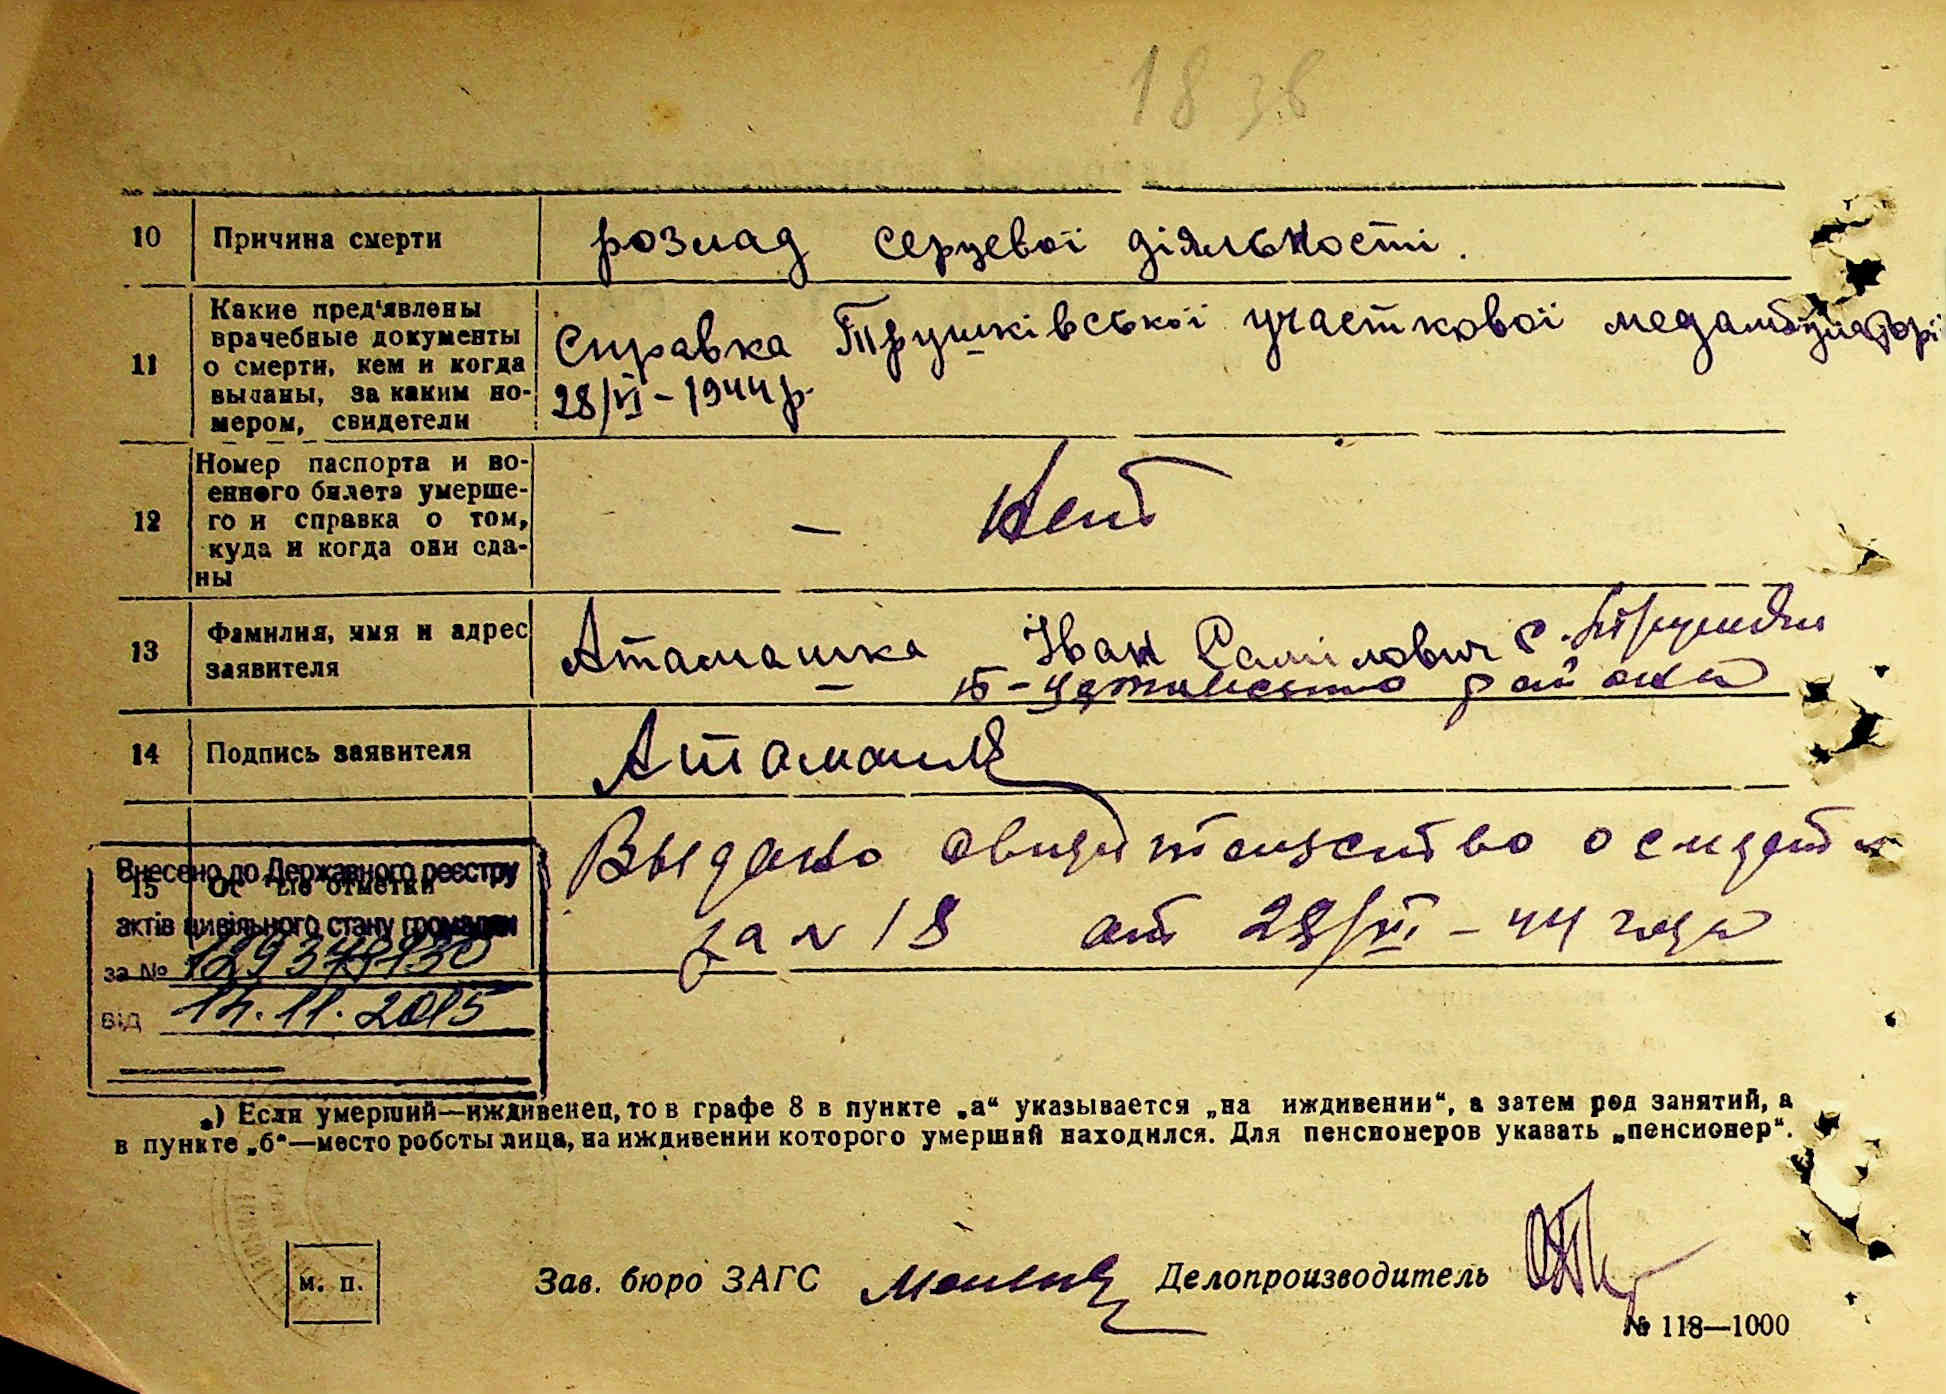 18 зв
10 Причина смерти розлад серцевої діяльності.
11 Какие пред'явлены
врачебные документы
о смерти, кем и когда
выданы, за каким но-
мером, свидетели
Справка Трушківської участкової медамбулаторії
28/VI – 1944 р.
12 Номер паспорта и во-
енного билета умерше-
го и справка о том,
куда и когда они сда-
ны
— Нет
13 Фамилия, имя и адрес
заявителя
Атамашка Іван с.
района
14 Подпись заявителя
15
Выдано свидетельство о смерти
за № 18 от 28/VI – 44 года
Внесено до Державного реєстру
актів цивільного стану громадян
за №
від 14.11.2015
*) Если умерший—иждивенец, то в графе 8 в пункте „а“ указывается „на иждивении“, а затем род занятий, а
в пункте „б“—место роботы лица, на иждивении которого умерший находился. Для пенсионеров указать „пенсионер“.
м. п. Зав. бюро ЗАГС Делопроизводитель
№ 118—1000